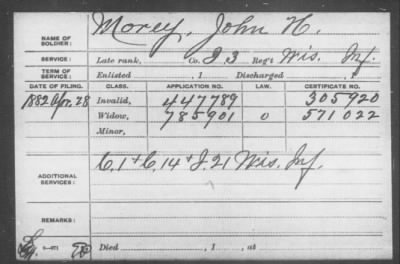 NAME OF SOLDIER: Morey, John H.
SERVICE: Late rank, Co. I 3 Reg't Wis. Inf.
TERM OF SERVICE: Enlisted , 1 Discharged , 1
DATE OF FILING. CLASS. APPLICATION NO. LAW. CERTIFICATE NO.
1882 Apr. 28 Invalid, 447789 305920
Widow, 785901 O 571022
Minor,
ADDITIONAL SERVICES: C. 1 + C. 14 + I. 21 Wis. Inf.
REMARKS:
3—071
Died , 1 , at